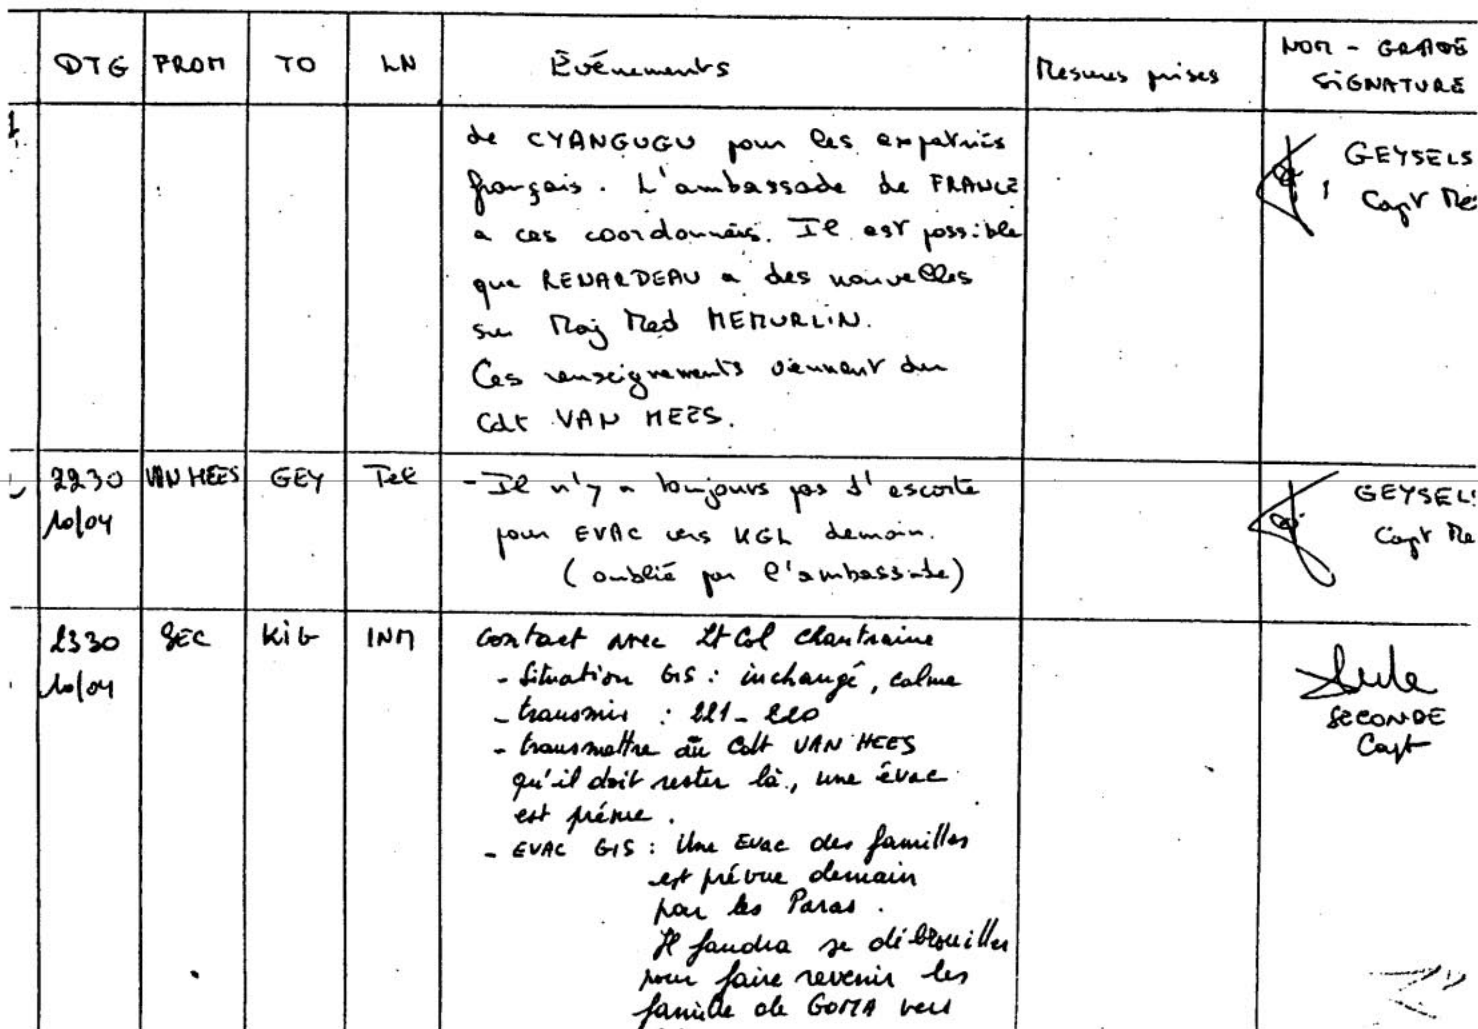 DTG FROM TO LN Événements Mesures prises NOM - GRADE
SIGNATURE
de CYANGUGU pour les expatriés
français. L'ambassade de FRANCE
a ces coordonnées. Il est possible
que RENARDEAU a des nouvelles
sur Maj Med MEMURLIN.
Ces renseignements viennent du
Cdt VAN HEES.
GEYSELS
Capt Mé
2230 VAN HEES GEY Tel - Il n'y a toujours pas d'escorte
10/04 pour EVAC vers KGL demain.
(oublié par l'ambassade)
GEYSEL
Capt Me
2330 SEC KiG INM Contact avec Lt Col Chantraine
10/04 - Situation GIS : inchangé, calme
- transmis :
- transmettre au Cdt VAN HEES
qu'il doit rester là, une évac
est prévue.
- EVAC GIS : Une Evac des familles
est prévue demain
par les Paras.
Il faudra se débrouiller
pour faire revenir les
famille de GOMA vers
SECONDE
Capt